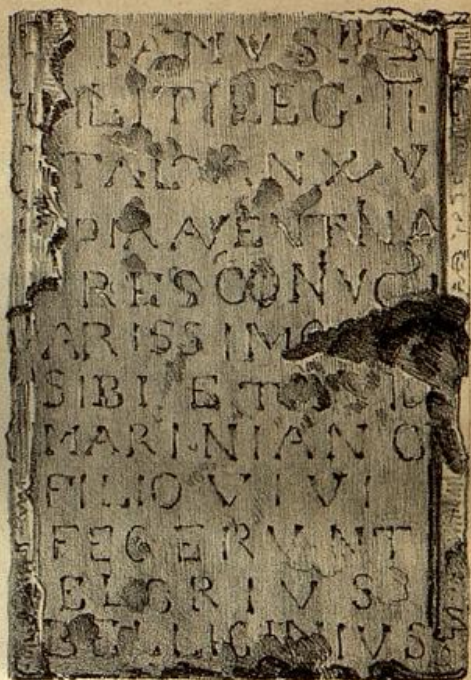 PAMVS
ILITI LEG · II ·
TAL
AVENTINA
RES CONVG
ARISSIMO
SIBI ET
MARINIANO
FILIO VIVI
FECERVNT
BELLICINIVS